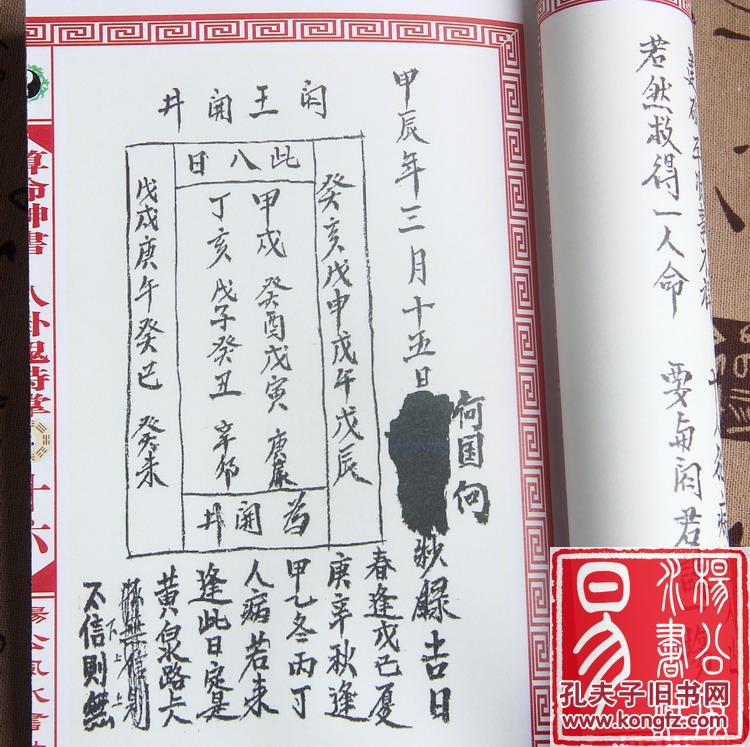 若然救得一人命 要与阎君
甲辰年三月十五日
何国向
抄録吉日
井開王闷
日八此
癸亥戊申戊午戊辰
甲戌 癸酉戊寅 庚辰
丁亥 戊子癸丑 辛卯
戊戌庚午癸巳 癸未
井開为
春逢戊己夏
庚辛秋逢
甲乙冬丙丁
人病若来
逢此日定是
黄泉路上
下上
不信則無
算命神書 八卦鬼時掌
十六
楊公風水書
楊公風水書
易
孔夫子旧书网
www.kongfz.com